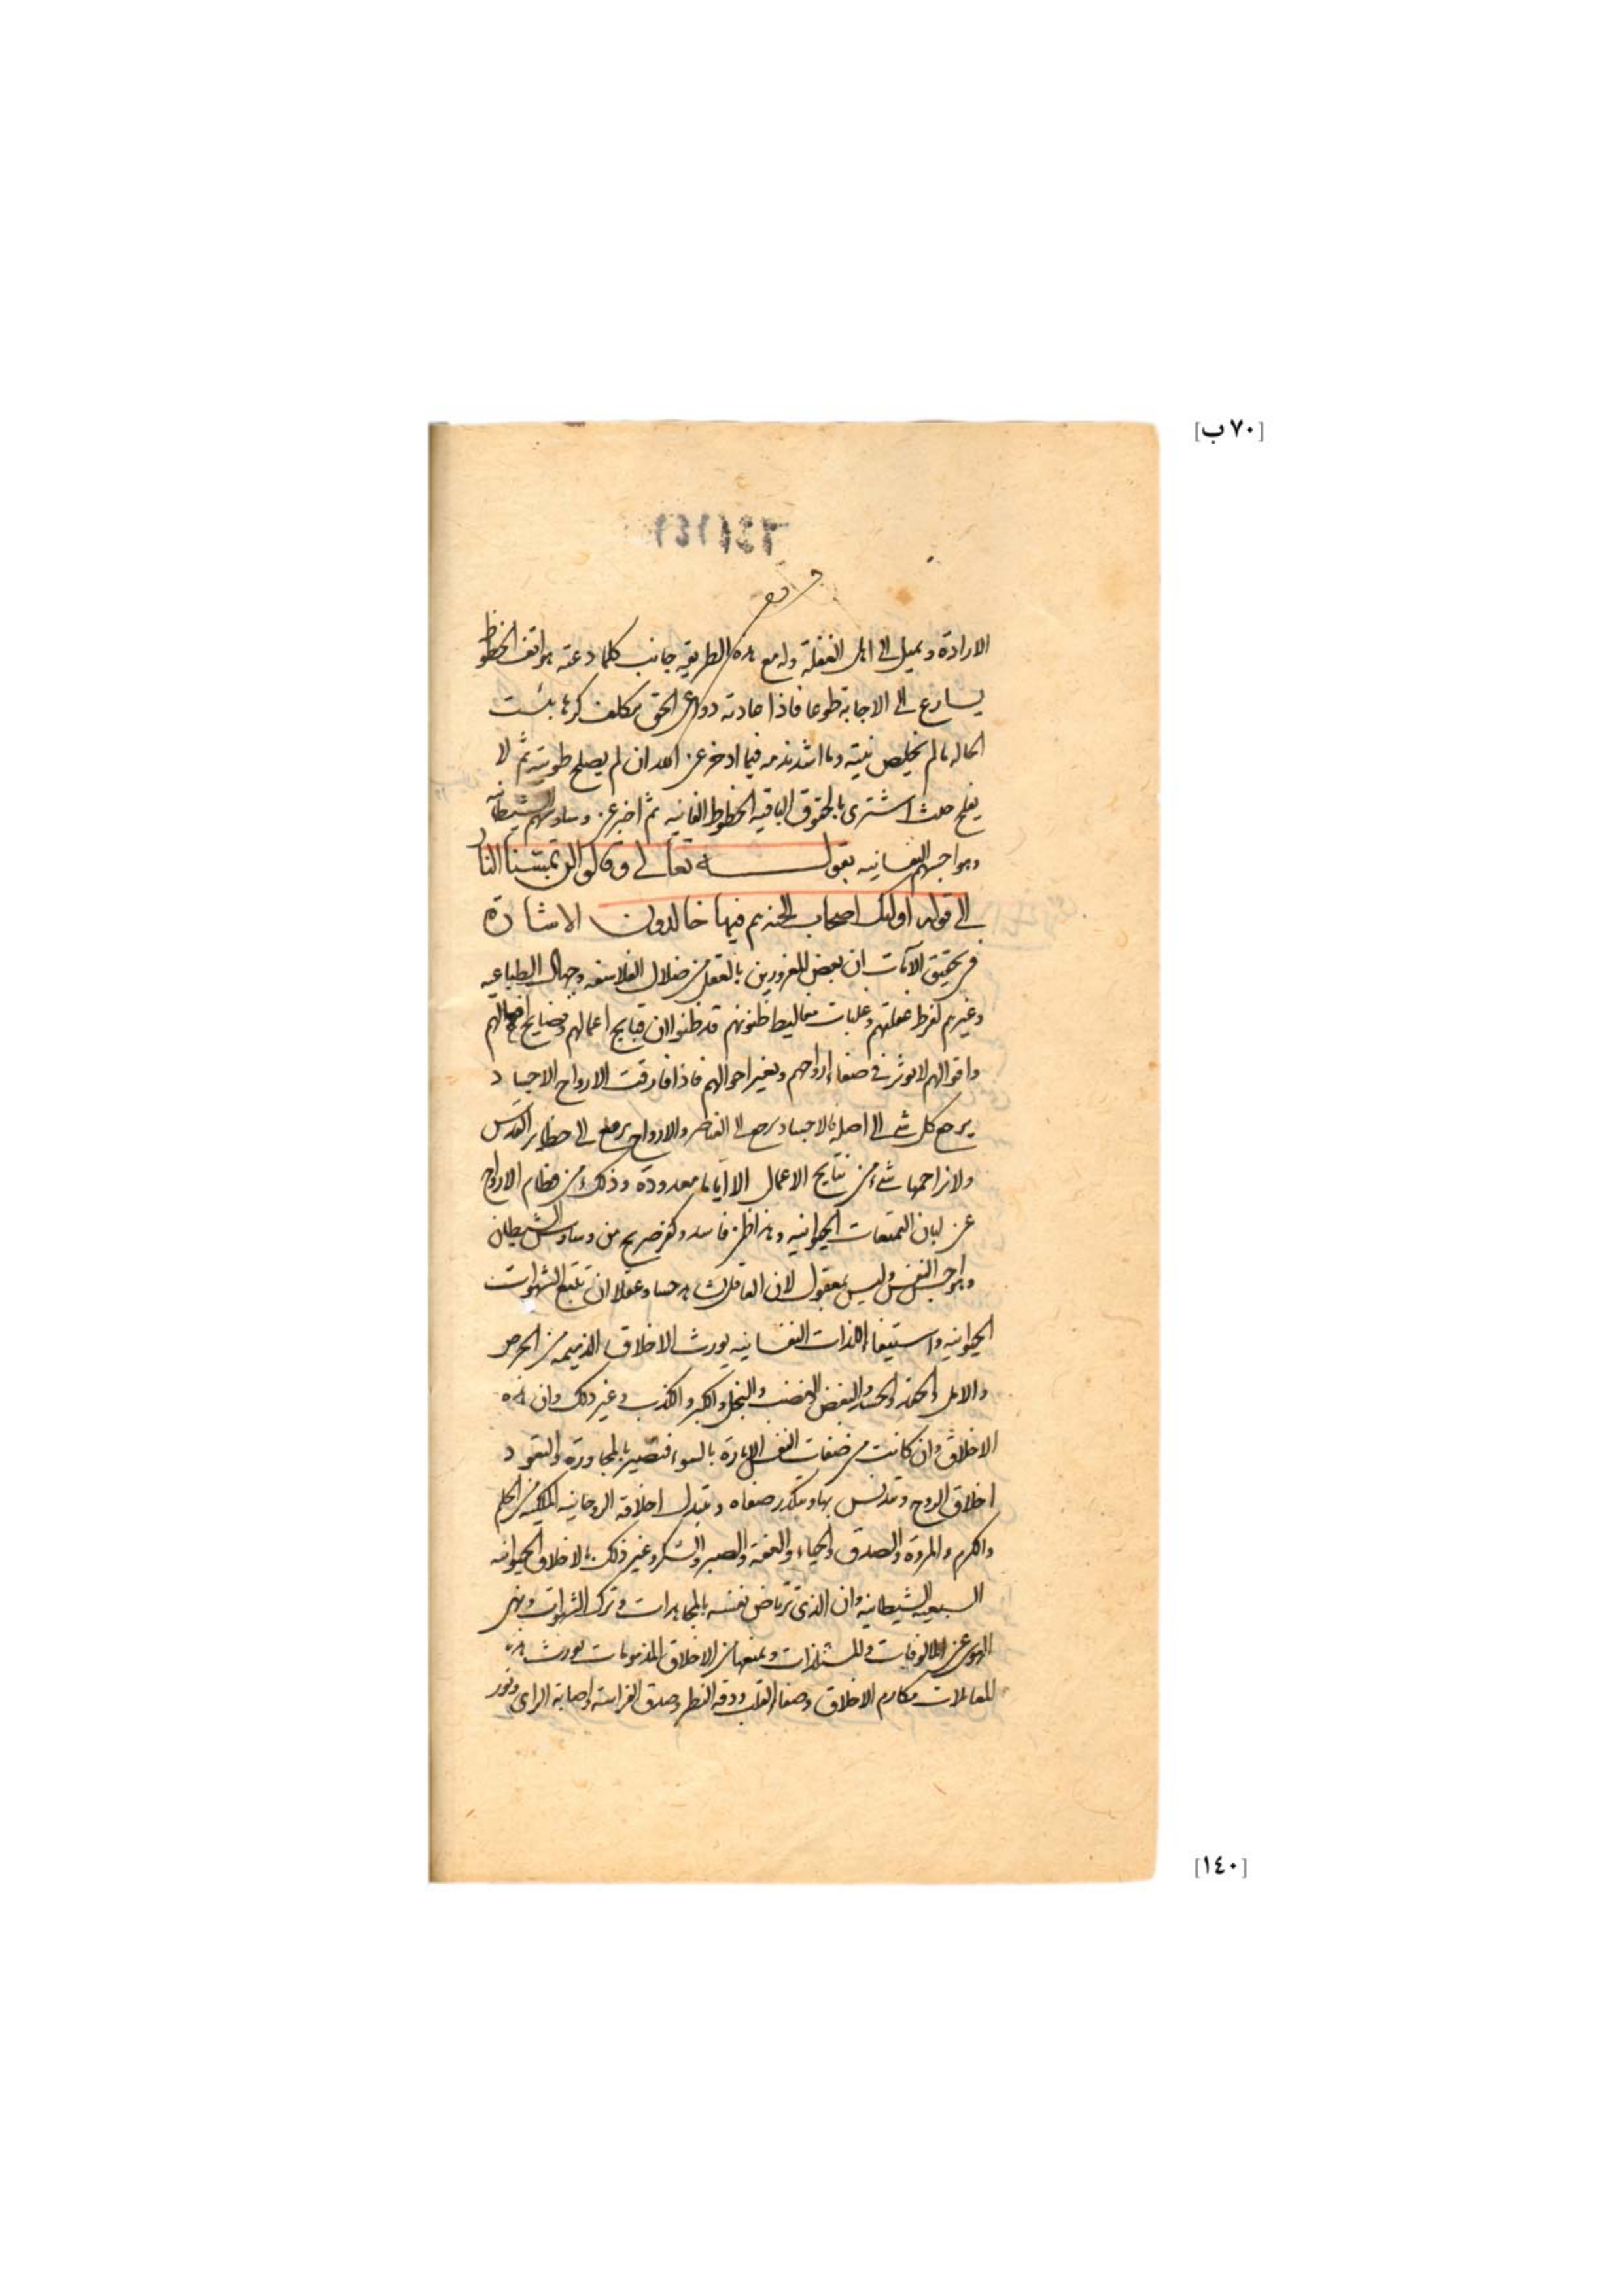 [٧٠ ب]
الارادة ويميل الى اهل الغفلة وله مع هذه الطريقة جانب كلما دعته هواتف الحظوظ
يسارع الى الاجابة طوعا فاذا دواعى الحق يتكلف كرها بئست
الحاله مالم يخلص نيته وما اشد ندمه فيما ادخر عن الله ان لم يصلح طويته ثم لا
يفلح حيث اشترى بالحقوق الباقيه الحظوظ الفانيه ثم اخبر عن وساوسهم الشيطانيه
وهواجسهم النفسانيه بقوله تعالى وقالوا لن تمسنا النار
الى قوله اولئك اصحاب الجنه هم فيها خالدون الاشارة
فى تحقيق الآيات ان بعض المغرورين بالعقل من ضلال الفلاسفه وجهال الطبايعيه
وغيرهم لفرط غفلتهم وغلبات مغاليط ظنونهم قد ظنوا ان قبايح اعمالهم وفضايح افعالهم
واقوالهم لا تؤثر فى صفاء ارواحهم وتغير احوالهم فاذا فارقت الارواح الاجساد
يرجع كل شى الى اصله فالاجساد ترجع الى العناصر والارواح ترجع الى حظاير القدس
ولا تزاحمها شئ من نتايج الاعمال الا اياما معدودة وذلك من فطام الارواح
عن لبان التمتعات الحيوانيه وهذا ظن فاسد وكفر صريح من وساوس الشيطان
وهواجس النفس وليس بمعقول لان العاقل يشاهد حسا وعقلا ان تتبع الشهوات
الحيوانيه واستيفاء اللذات النفسانيه يورث الاخلاق الذميمه من الحرص
والامل والحقد والحسد والبغض والغضب والبخل والكبر والكذب وغير ذلك وان هذه
الاخلاق وان كانت من صفات النفس الامارة بالسوء فتصير بالمجاورة والتعود
اخلاق الروح وتتدنس بها ويتكدر صفاه وتتبدل اخلاقه الروحانيه الملكيه من الحلم
والكرم والمروة والصدق والحياء والعفة والصبر والشكر وغير ذلك بالاخلاق الحيوانيه
السبعيه الشيطانيه وان الذى ترتاض نفسه بالمجاهدات وترك الشهوات ونهى
الهوى عن المالوفات والمستلذات ويمنعها من الاخلاق المذمومات يورث هذه
المعاملات مكارم الاخلاق وصفاء القلب ودقه النظر وصدق الفراسه واصابة الراى ونور
[١٤٠]